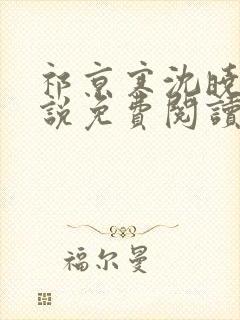 祁京寒沈晚
說免費閱讀
福尔曼